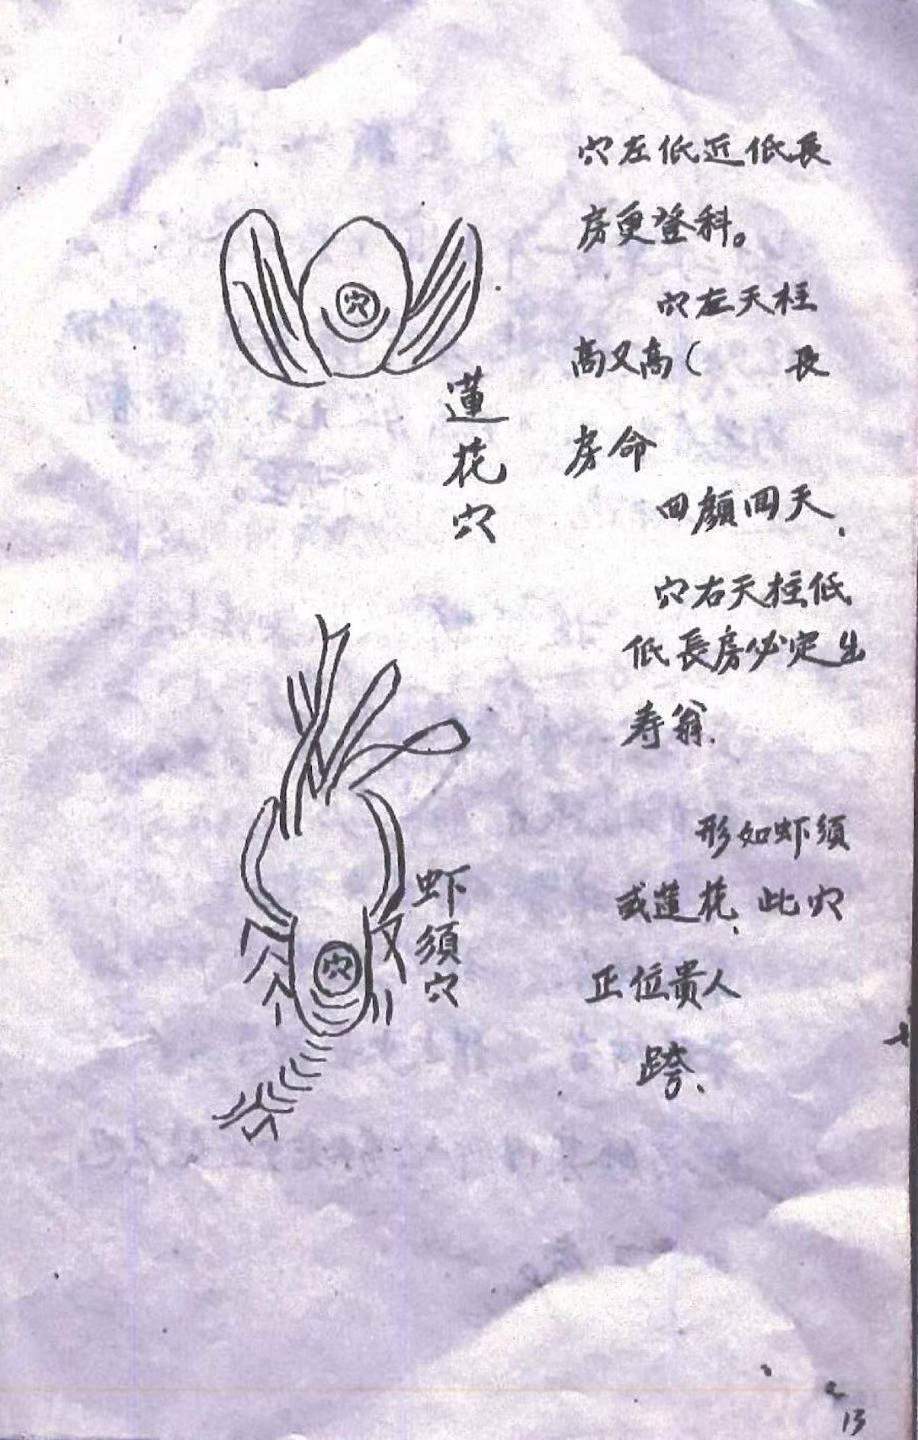 穴左低近低長
房更登科。
穴左天柱
高又高( 長
房命
回顏回天、
穴右天柱低
低長房必定出
寿翁.
形如虾須
或莲花、此穴
正位贵人
跨、
穴
蓮花穴
穴
虾須穴
13